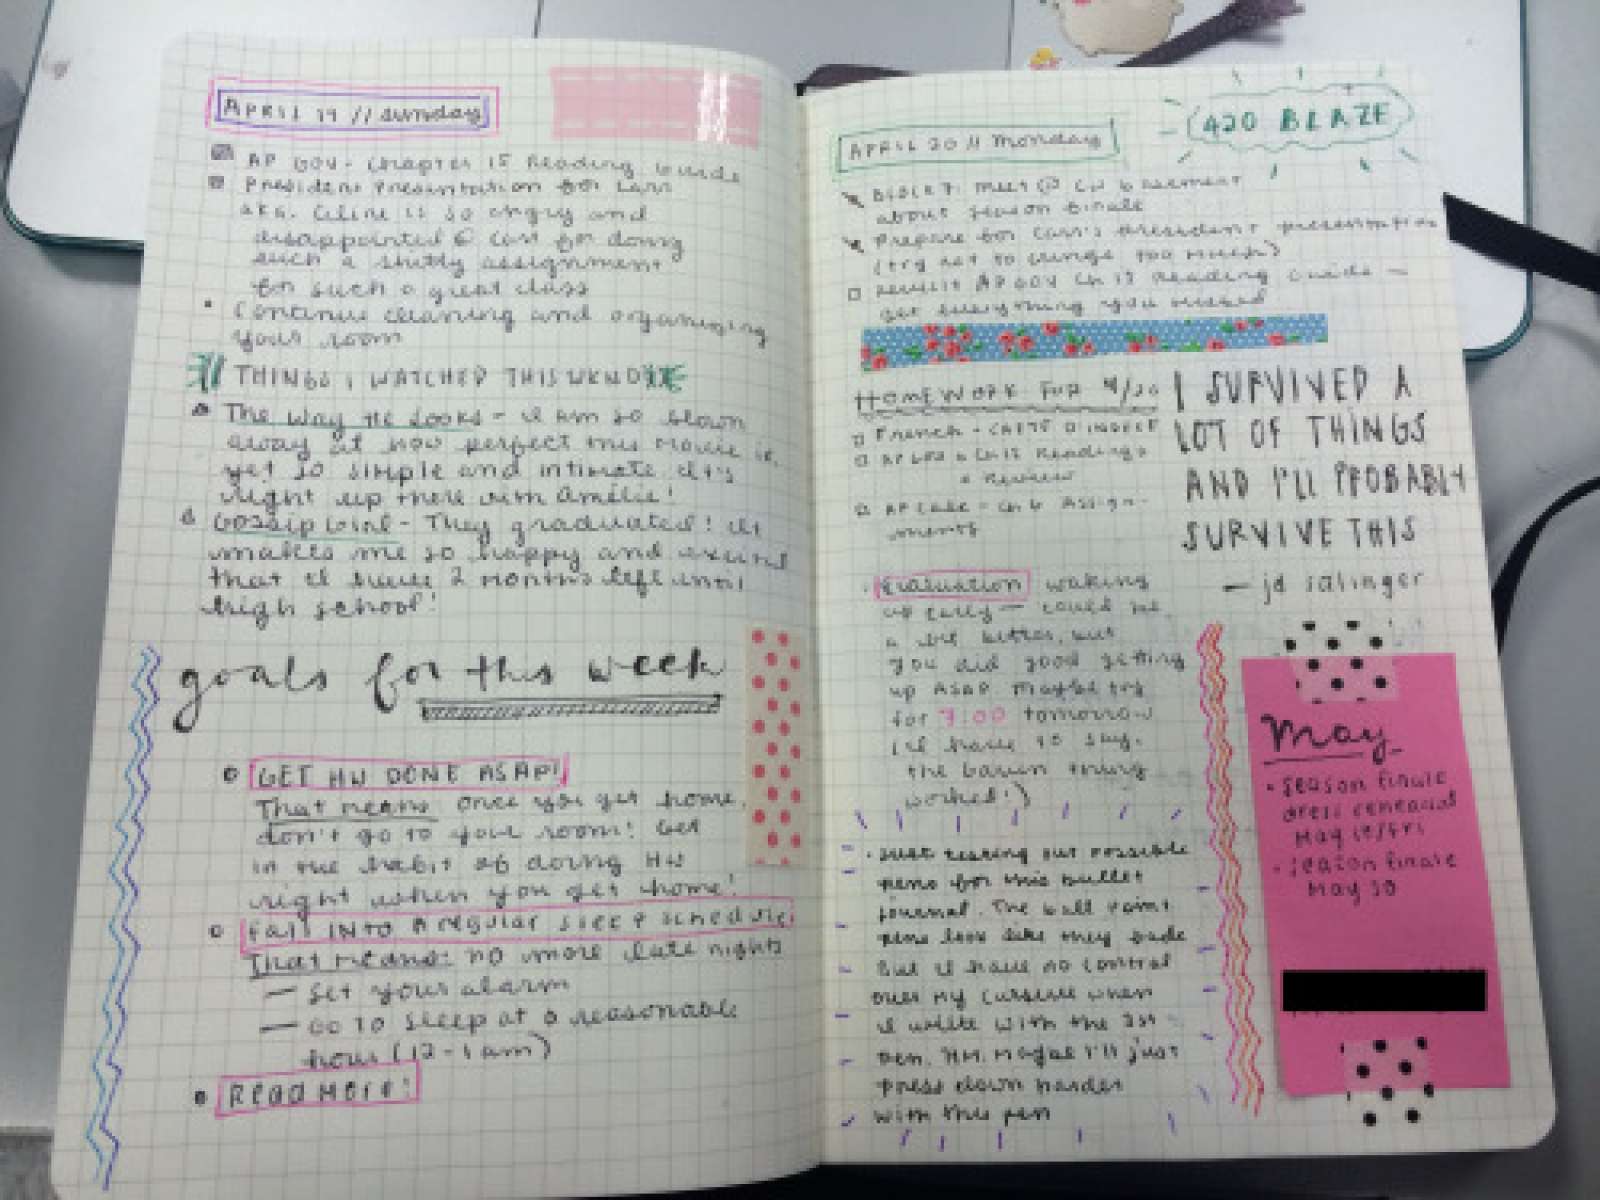 APRIL 19 // sunday
AP GOV - Chapter 15 Reading Guide
President Presentation for Carr
aka. Celine is so angry and
disappointed @ Carr for doing
such a shitty assignment
for such a great class
Continue cleaning and organizing
your room
THINGS I WATCHED THIS WKND
The Way He Looks - I am so blown
away at how perfect this movie is,
yet so simple and intimate. It's
right up there with Amélie!
Gossip Girl - They graduated! It
makes me so happy and excited
that I have 2 months left until
high school!
goals for this week
GET HW DONE ASAP!
That means once you get home,
don't go to your room! Get
in the habit of doing HW
right when you get home!
Fall INTO A regular sleep schedule
That means: no more late nights
— set your alarm
— GO TO sleep at a reasonable
hour (12-1 am)
Read More!
420 BLAZE
APRIL 20 // monday
Meet @ basement
about season finale
Prepare for Carr's president presentation
(try not to cringe too much)
AP GOV Ch 15 Reading Guide —
get everything you missed
HOMEWORK FOR 4/20
French -
AP GOV Ch 15 Readings
+ Review
AP Calc - Ch 6 Assign-
ments
I SURVIVED A
LOT OF THINGS
AND I'LL PROBABLY
SURVIVE THIS
— jd salinger
Evaluation waking
up early — could be
a bit better, but
you did good getting
up ASAP. Maybe try
for 7:00 tomorrow
I'd have to say,
the thing
worked!)
Just testing out possible
pens for this bullet
journal. The ball point
pens look like they fade
But I have no control
over my cursive when
I write with the 1st
pen. HM. Maybe I'll just
press down harder
with this pen
May
season finale
dress rehearsal
May
season finale
May